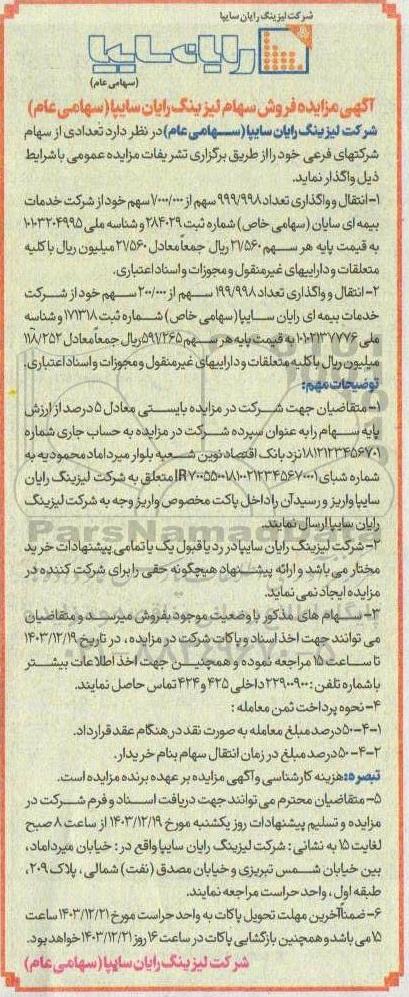 شرکت لیزینگ رایان سایپا
رایان سایپا
(سهامی عام)
آگهی مزایده فروش سهام لیزینگ رایان سایپا (سهامی عام)
شرکت لیزینگ رایان سایپا (سهامی عام) در نظر دارد تعدادی از سهام
شرکتهای فرعی خود را از طریق برگزاری تشریفات مزایده عمومی با شرایط
ذیل واگذار نماید.
۱- انتقال و واگذاری تعداد ۹۹۹/۹۹۸ سهم از ۱/۰۰۰/۰۰۰ سهم خود از شرکت خدمات
بیمه ای سایان (سهامی خاص) شماره ثبت ۲۸۴۰۲۹ و شناسه ملی ۱۰۱۰۳۲۰۴۹۹۵
به قیمت پایه هر سهم ۲۱/۵۶۰ ریال جمعا معادل ۲۱/۵۶۰ میلیون ریال با کلیه
متعلقات و داراییهای غیرمنقول و مجوزات و اسناد اعتباری.
۲- انتقال و واگذاری تعداد ۱۹۹/۹۹۸ سهم از ۲۰۰/۰۰۰ سهم خود از شرکت
خدمات بیمه ای رایان سایپا (سهامی خاص) شماره ثبت ۱۷۱۳۱۸ و شناسه
ملی ۱۰۱۰۲۱۳۷۷۷۶ به قیمت پایه هر سهم ۵۹۱/۲۶۵ ریال جمعاً معادل ۱۱۸/۲۵۲
میلیون ریال با کلیه متعلقات و داراییهای غیرمنقول و مجوزات و اسناد اعتباری.
توضیحات مهم:
۱- متقاضیان جهت شرکت در مزایده بایستی معادل ۵ درصد از ارزش
پایه سهام را به عنوان سپرده شرکت در مزایده به حساب جاری شماره
۱۸۱۲۱۲۳۴۵۶۷۰۱ نزد بانک اقتصاد نوین شعبه بلوار میرداماد محمودیه به
شماره شبای IR۷۰۰۵۵۰۰۱۸۱۰۰۲۱۲۳۴۵۶۷۰۰۰۱ متعلق به شرکت لیزینگ رایان
سایپا واریز و رسید آن را داخل پاکت مخصوص واریز وجه به شرکت لیزینگ
رایان سایپا ارسال نمایند.
۲- شرکت لیزینگ رایان سایپا در رد یا قبول یک یا تمامی پیشنهادات خرید
مختار می باشد و ارائه پیشنهاد هیچگونه حقی را برای شرکت کننده در
مزایده ایجاد نمی نماید.
۳- سهام های مذکور با وضعیت موجود بفروش میرسد و متقاضیان
می توانند جهت اخذ اسناد و پاکات شرکت در مزایده، در تاریخ ۱۴۰۳/۱۲/۱۹
تا ساعت ۱۵ مراجعه نموده و همچنین جهت اخذ اطلاعات بیشتر
با شماره تلفن: ۲۲۹۰۰۹۰۰ داخلی ۴۲۵ و ۴۲۴ تماس حاصل نمایند.
۴- نحوه پرداخت ثمن معامله:
۴-۱- ۵۰ درصد مبلغ معامله به صورت نقد در هنگام عقد قرارداد.
۴-۲- ۵۰ درصد مبلغ در زمان انتقال سهام بنام خریدار.
تبصره: هزینه کارشناسی و آگهی مزایده بر عهده برنده مزایده است.
۵- متقاضیان محترم می توانند جهت دریافت اسناد و فرم شرکت در
مزایده و تسلیم پیشنهادات روز یکشنبه مورخ ۱۴۰۳/۱۲/۱۹ از ساعت ۸ صبح
لغایت ۱۵ به نشانی: شرکت لیزینگ رایان سایپا واقع در: خیابان میرداماد،
بین خیابان شمس تبریزی و خیابان مصدق (نفت) شمالی، پلاک ۲۰۹،
طبقه اول، واحد حراست مراجعه نمایند.
۶- ضمناً آخرین مهلت تحویل پاکات به واحد حراست مورخ ۱۴۰۳/۱۲/۲۱ ساعت
۱۵ می باشد و همچنین بازگشایی پاکات در ساعت ۱۶ روز ۱۴۰۳/۱۲/۲۱ خواهد بود.
شرکت لیزینگ رایان سایپا (سهامی عام)